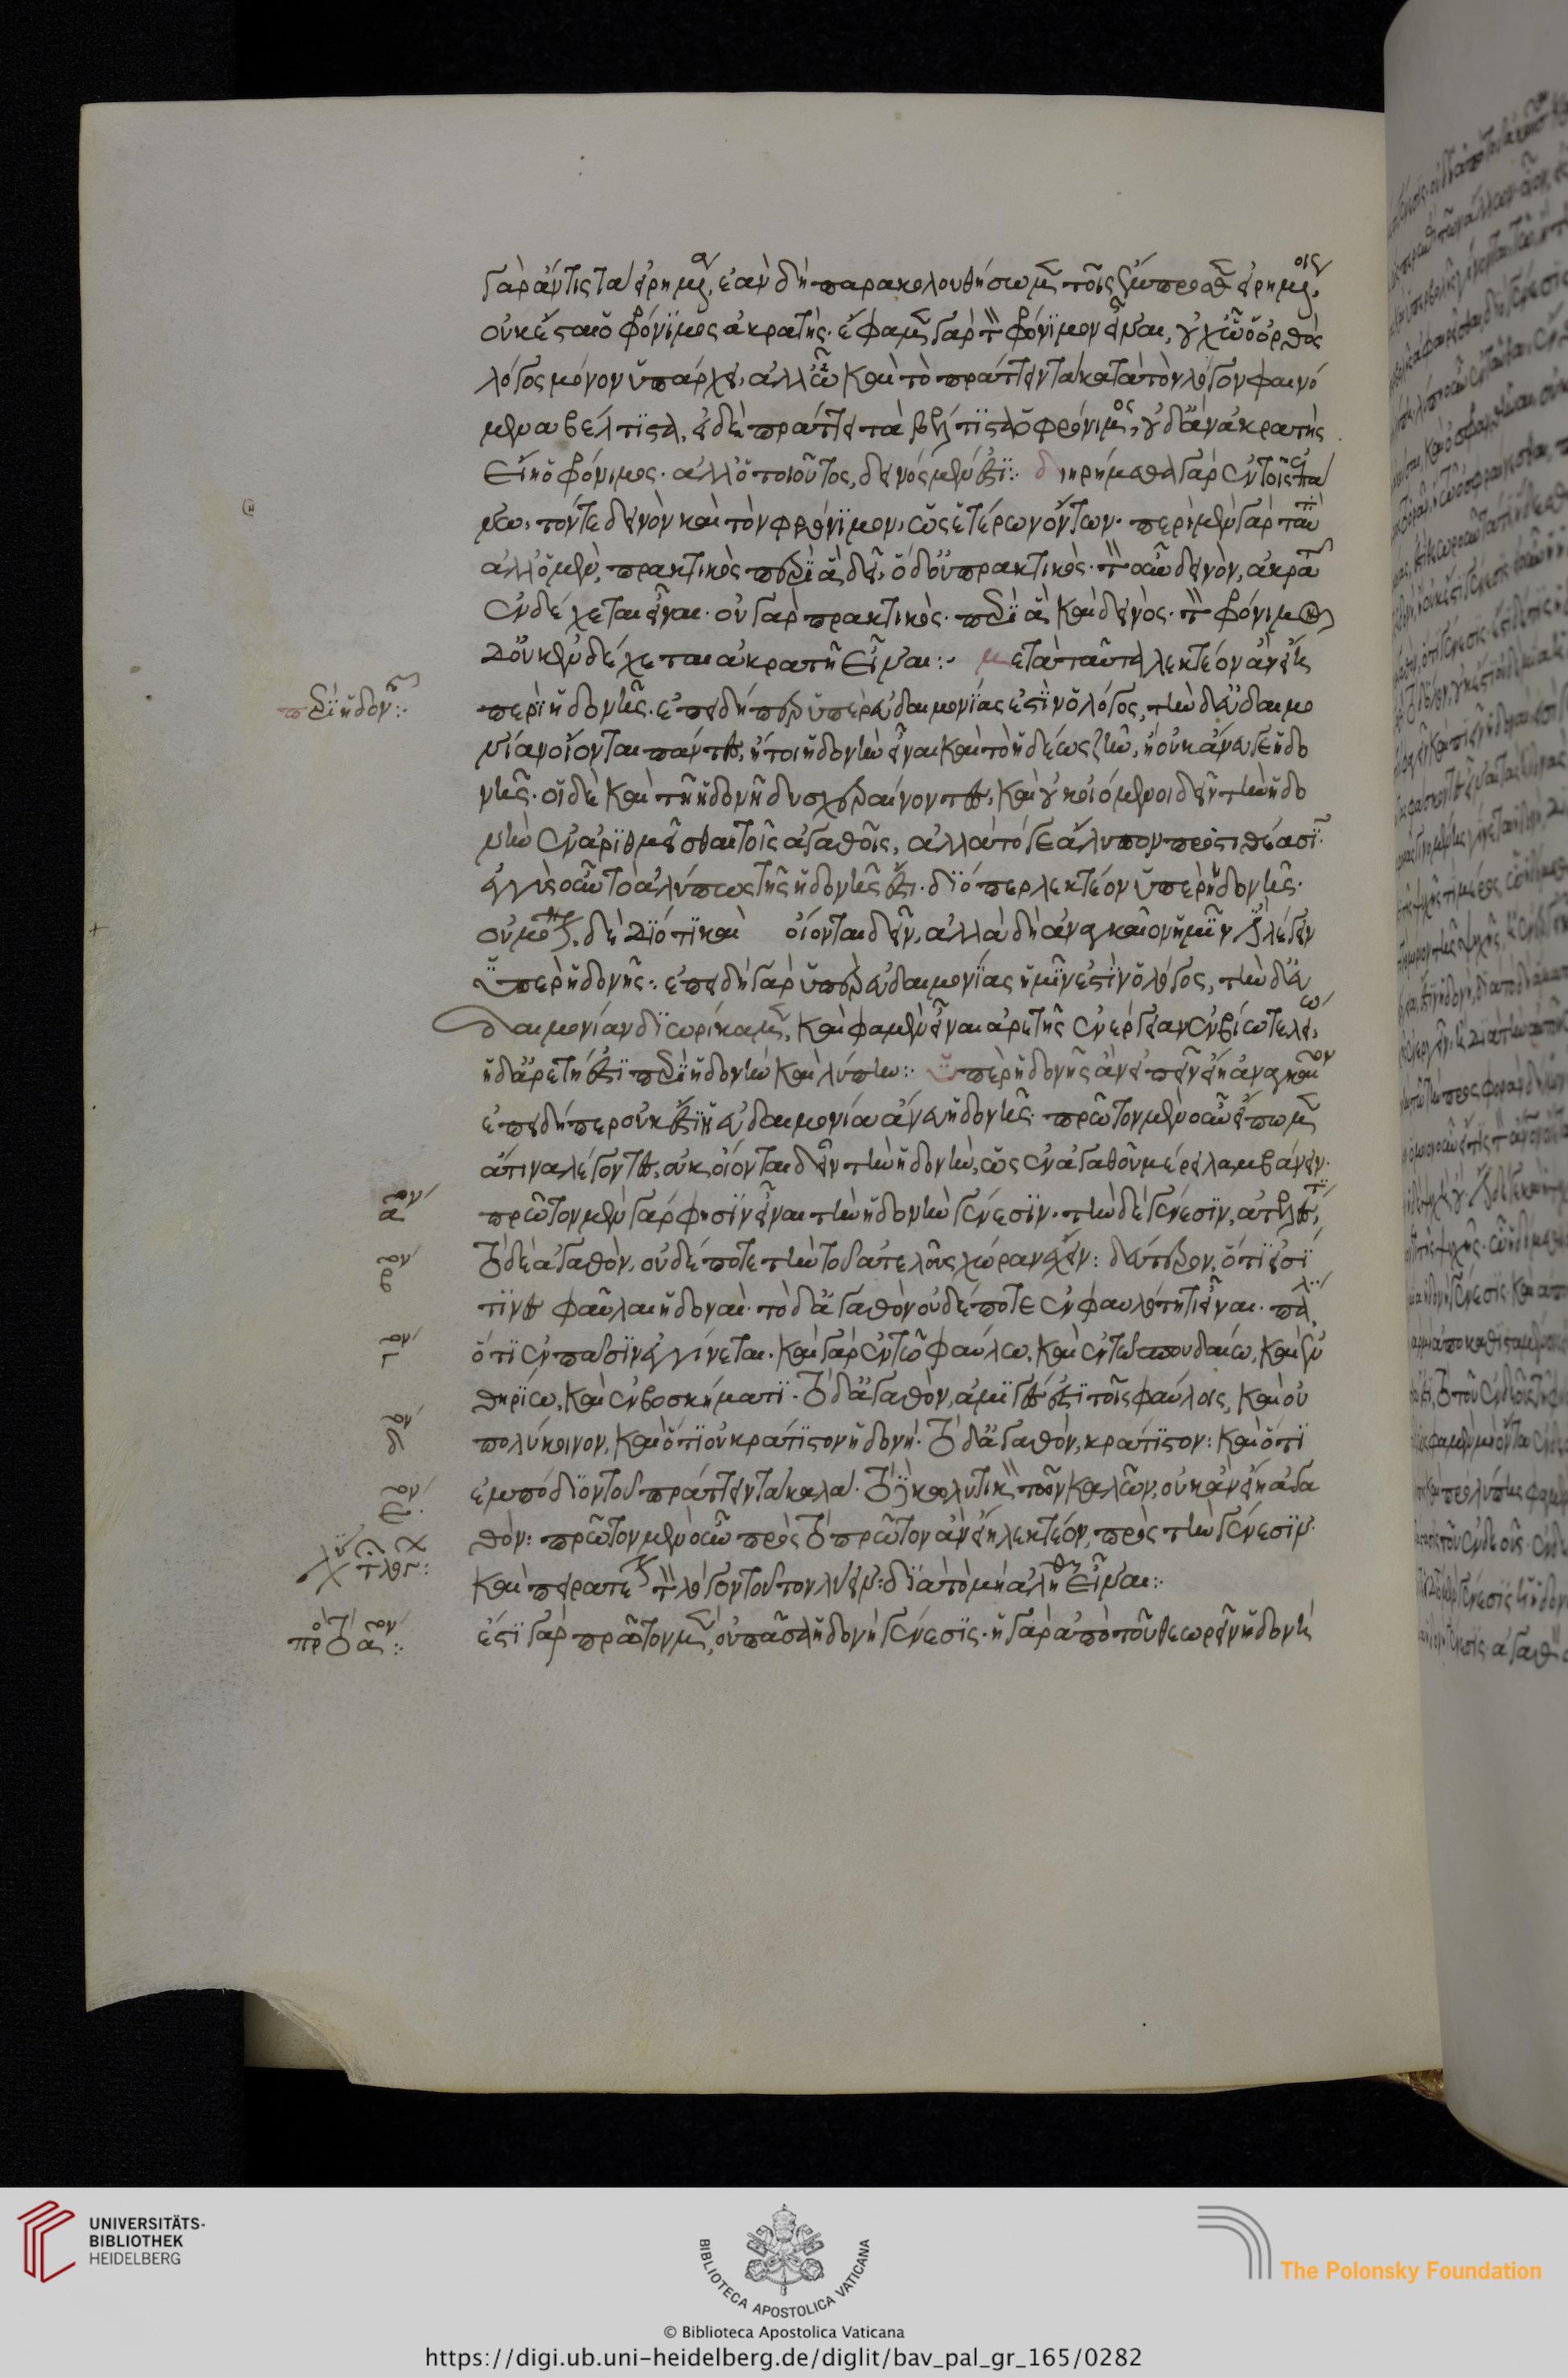 γὰρ ἄν τις τὰ εἰρημένα, ἐὰν δὴ παρακολουθήσωμεν τοῖς ἔμπροσθεν εἰρημένοις,
οὐκ ἔσται ὁ φρόνιμος ἀκρατής. ἔφαμεν γὰρ τὸν φρόνιμον εἶναι, οὐχ ᾧ ὁ ὀρθὸς
λόγος μόνον ὑπάρχει, ἀλλ' ᾧ καὶ τὸ πράττειν τὰ κατὰ τὸν λόγον φαινό
μενα βέλτιστα. εἰ δὲ πράττει τὰ βέλτιστα ὁ φρόνιμος, οὐδ' ἂν ἀκρατὴς
εἴη ὁ φρόνιμος. ἀλλ' ὁ τοιοῦτος, δεινὸς μέν ἐστι: διῃρήμεθα γὰρ ἐν τοῖς ἐπά
νω, τόν τε δεινὸν καὶ τὸν φρόνιμον, ὡς ἑτέρων ὄντων. περὶ μὲν γὰρ ταὐτὰ
ἀλλ' ὁ μὲν, πρακτικὸς περὶ ἃ δεῖ, ὁ δ' οὐ πρακτικός. τὸν οὖν δεινὸν, ἀκρατῆ
ἐνδέχεται εἶναι. οὐ γὰρ πρακτικὸς. περὶ ἃ καὶ δεινὸς. τὸν φρόνιμον
δ' οὐκ ἐνδέχεται ἀκρατῆ εἶναι: μετὰ ταῦτα λεκτέον ἂν εἴη
περὶ ἡδονῆς. ἐπειδήπερ ὑπὲρ εὐδαιμονίας ἐστὶν ὁ λόγος, τὴν δ' εὐδαιμο
νίαν οἴονται πάντες, ἤτοι ἡδονὴν εἶναι καὶ τὸ ἡδέως ζῆν, ἢ οὐκ ἄνευ γε ἡδο
νῆς. οἱ δὲ καὶ τῇ ἡδονῇ δυσχεραίνοντες, καὶ οὐκ οἰόμενοι δεῖν τὴν ἡδο
νὴν ἐναριθμεῖσθαι τοῖς ἀγαθοῖς, ἀλλὰ τό γε ἄλυπον προστιθέασι.
ἐγγὺς οὖν τὸ ἀλύπως τῆς ἡδονῆς ἐστι. διόπερ λεκτέον ὑπὲρ ἡδονῆς.
οὐ μόνον δὲ διότι καὶ οἴονται δεῖν, ἀλλὰ δὴ ἀναγκαῖον ἡμῖν ἐστι λέγειν
ὑπὲρ ἡδονῆς: ἐπειδὴ γὰρ ὑπὲρ εὐδαιμονίας ἡμῖν ἐστὶν ὁ λόγος, τὴν δ' εὐ
δαιμονίαν διωρίκαμεν, καὶ φαμὲν εἶναι ἀρετῆς ἐνέργειαν ἐν βίῳ τελείῳ,
ἡ δ' ἀρετή ἐστι περὶ ἡδονὴν καὶ λύπην: ὑπὲρ ἡδονῆς ἂν εἰπεῖν εἴη ἀναγκαῖον
ἐπειδήπερ οὐκ ἔστιν ἡ εὐδαιμονία ἄνευ ἡδονῆς. πρῶτον μὲν οὖν εἴπωμεν
ἅ τινα λέγοντες, οὐκ οἴονται δεῖν τὴν ἡδονὴν, ὡς ἐν ἀγαθοῦ μέρει λαμβάνειν.
πρῶτον μὲν γάρ φησιν εἶναι τὴν ἡδονὴν γένεσιν. τὴν δὲ γένεσιν, ἀτελές τι,
τὸ δὲ ἀγαθὸν, οὐδέποτε τὴν τοῦ ἀτελοῦς χώραν ἔχειν: δεύτερον, ὅτι εἰσί
τινες φαῦλαι ἡδοναί. τὸ δ' ἀγαθὸν οὐδέποτε ἐν φαυλότητι εἶναι. πάλιν
ὅτι ἐν πᾶσιν ἐγγίνεται. καὶ γὰρ ἐν τῷ φαύλῳ, καὶ ἐν τῷ σπουδαίῳ, καὶ ἐν
θηρίῳ, καὶ ἐν βοσκήματι. τὸ δ' ἀγαθὸν, ἀμιγές ἐστι τοῖς φαύλοις, καὶ οὐ
πολύκοινον, καὶ ὅτι οὐ κράτιστον ἡδονή. τὸ δ' ἀγαθὸν, κράτιστον: καὶ ὅτι
ἐμπόδιον τοῦ πράττειν τὰ καλά. τὸ δὲ κωλυτικὸν τῶν καλῶν, οὐκ ἂν εἴη ἀγα
θόν: πρῶτον μὲν οὖν πρὸς τὸ πρῶτον ἂν εἴη λεκτέον, πρὸς τὴν γένεσιν.
καὶ πειρατέον τὸν λόγον τοῦτον λύειν: διὰ τὸ μὴ ἀληθῆ εἶναι:
ἔστι γὰρ πρῶτον μὲν, οὐ πᾶσα ἡδονὴ γένεσις. ἡ γὰρ ἀπὸ τοῦ θεωρεῖν ἡδονὴ
περὶ ἡδονῆς:
αον
βον
γον
δον
εον
πρὸς τὸ αον:
UNIVERSITÄTS-
BIBLIOTHEK
HEIDELBERG
BIBLIOTECA APOSTOLICA VATICANA
© Biblioteca Apostolica Vaticana
The Polonsky Foundation
https://digi.ub.uni-heidelberg.de/diglit/bav_pal_gr_165/0282